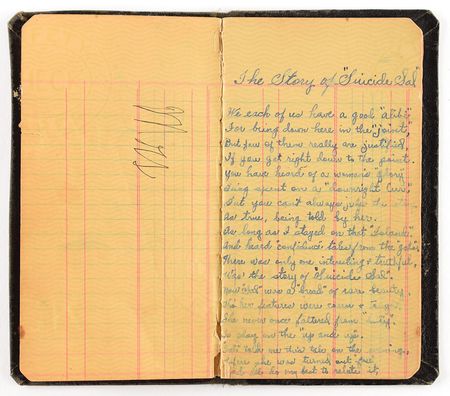 The Story of "Suicide Sal"
We each of us have a good "alibi"
For being down here in the "joint",
But few of them really are justified
If you get right down to the point.
You have heard of a woman's "glory"
Being spent on a "downright Cur",
But you can't always judge the
As true, being told by her.
As long as I stayed on that "Island"
And heard "confidence tales" from the "gals"
There was only one interesting & truthful,
Was the story of "Suicide Sal".
Now "Sal" was a "broad" of rare beauty,
Tho' her features were coarse &
She never once faltered from "duty"
To play on the "up and up".
Sal told me this tale on the evening,
Before she was turned out "free"
And I'll do my best to relate it